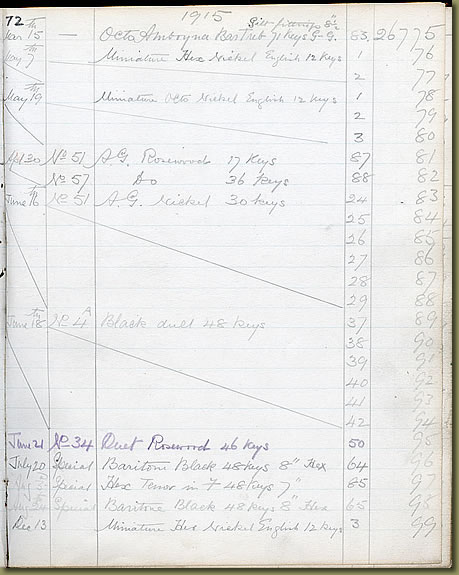 72
1915
Gilt stamps 8"
15th — Octo Amboyna Bas Treb 71 keys G-G. 83. 26775
7th Miniature Hex Nickel English 12 keys 1 76
2 77
May 19th Miniature Octo Nickel English 12 keys 1 78
2 79
3 80
30 No 51 A.G. Rosewood 17 keys 87 81
No 57 Do 36 keys 88 82
June 16th No 51 A.G. Nickel 30 keys 24 83
25 84
26 85
27 86
28 87
29 88
June 18th No 4A Black duet 48 keys 37 89
38 90
39 91
40 92
41 93
42 94
June 21 No 34 Duet Rosewood 46 keys 50 95
July 20 Special Baritone Black 48 keys 8" Hex 64 96
Special Hex Tenor in F 48 keys 7" 85 97
Special Baritone Black 48 keys 8" Hex 65 98
Dec 13 Miniature Hex Nickel English 12 keys 3 99